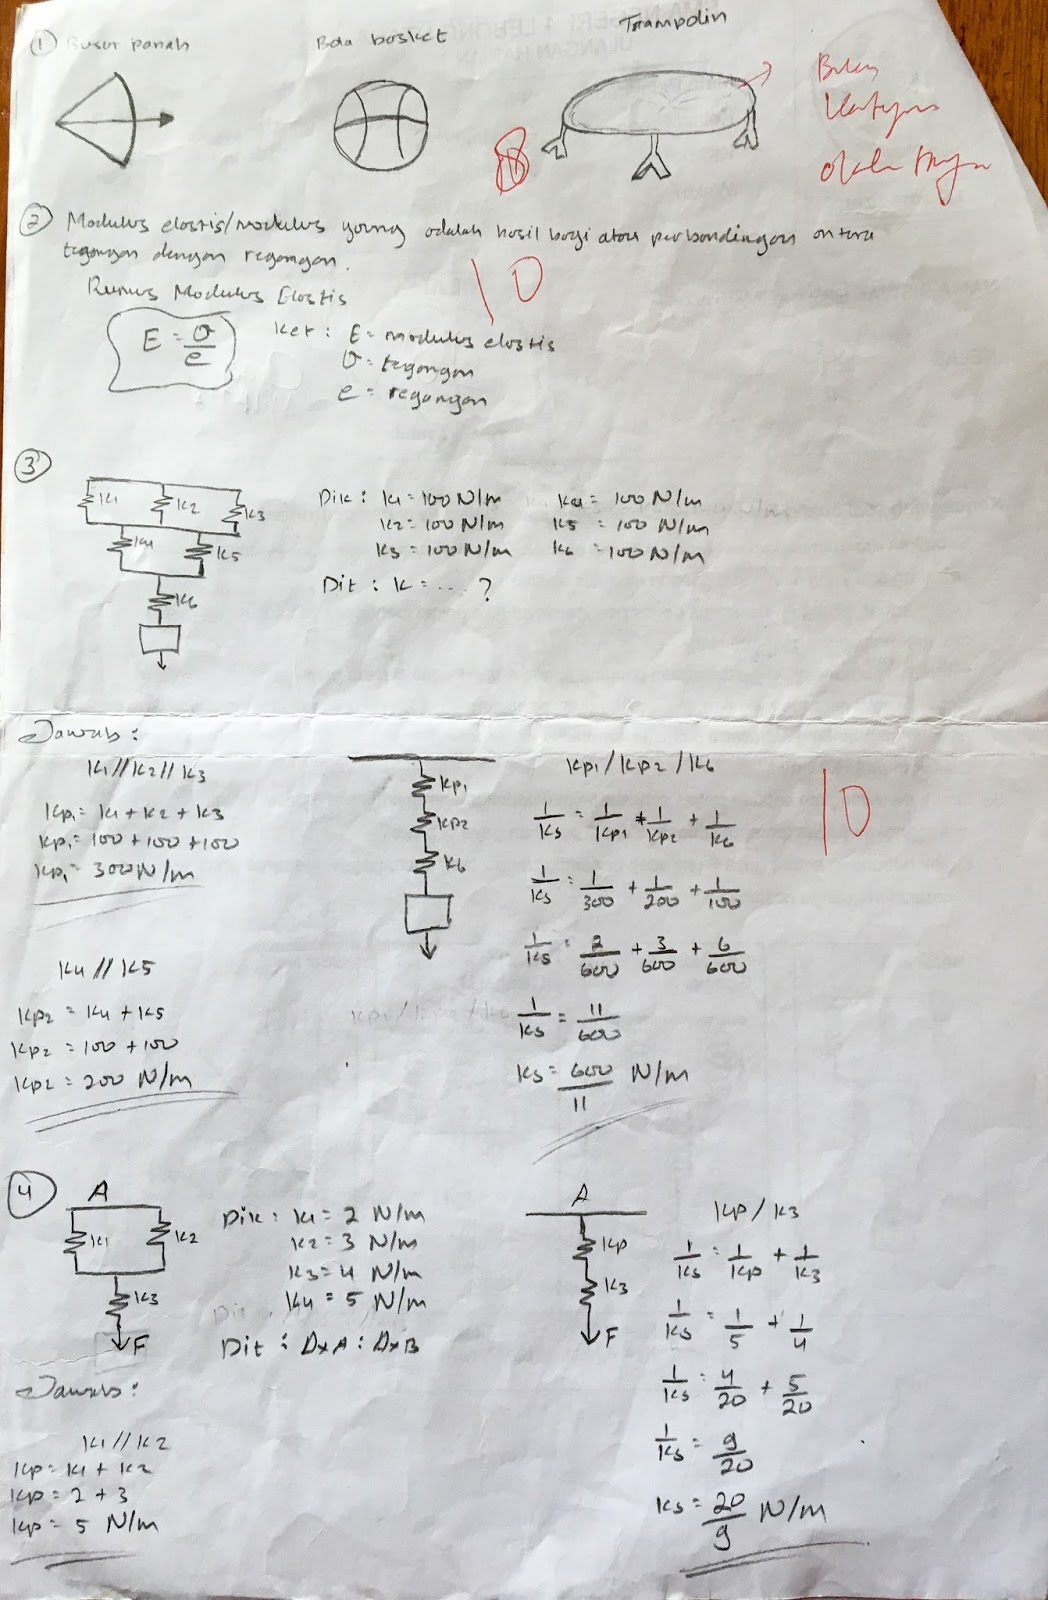 ① Busur panah Bola basket Trampolin
Bukan
② Modulus elastis/modulus young adalah hasil bagi atau perbandingan antara
tegangan dengan regangan.
10
Rumus Modulus Elastis
E = σ/e
Ket : E = modulus elastis
σ = tegangan
e = regangan
③
K1 K2 K3
K4 K5
K6
Dik : K1 = 100 N/m K4 = 100 N/m
K2 = 100 N/m K5 = 100 N/m
K3 = 100 N/m K6 = 100 N/m
Dit : K = .... ?
Jawab :
K1//K2//K3
Kp1 = K1 + K2 + K3
Kp1 = 100 + 100 + 100
Kp1 = 300 N/m
K4 // K5
Kp2 = K4 + K5
Kp2 = 100 + 100
Kp2 = 200 N/m
Kp1
Kp2
K6
Kp1/Kp2/K6
1/Ks = 1/Kp1 + 1/Kp2 + 1/K6
1/Ks = 1/300 + 1/200 + 1/100
1/Ks = 2/600 + 3/600 + 6/600
1/Ks = 11/600
Ks = 600/11 N/m
10
④ A
K1 K2
K3
F
Dik : K1 = 2 N/m
K2 = 3 N/m
K3 = 4 N/m
K4 = 5 N/m
Dit : ΔxA : ΔxB
Jawab :
K1//K2
Kp = K1 + K2
Kp = 2 + 3
Kp = 5 N/m
A
Kp
K3
F
Kp/K3
1/Ks = 1/Kp + 1/K3
1/Ks = 1/5 + 1/4
1/Ks = 4/20 + 5/20
1/Ks = 9/20
Ks = 20/9 N/m